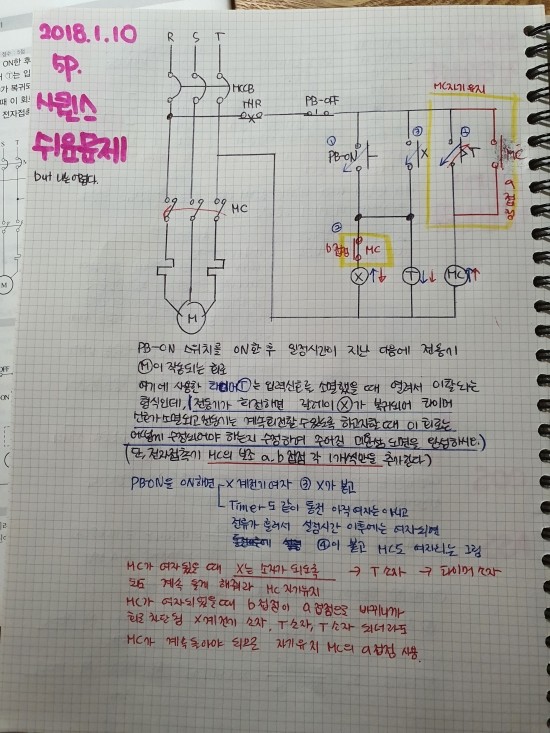 2018.1.10
5P.
시퀀스
쉬운문제
but 나는 어렵다.
R S T
MCCB
THR
PB-OFF
MC자기유지
① PB-ON
③ X
④ T
MC
a접점
MC
② b접점 MC
X T MC
M
PB-ON 스위치를 ON한 후 일정시간이 지난 다음에 전동기
Ⓜ이 작동되는 회로
여기에 사용한 타이머 Ⓣ는 입력신호를 소멸했을 때 열려서 이탈되는
형식인데, (전동기가 회전하면 릴레이 Ⓧ가 복귀되어 타이머
신호가 소멸되고 전동기는 계속회전할 수 있도록 하고자할 때 이 회로는
어떻게 수정되어야 하는지 수정하여 주어진 미완성 도면을 완성하세요.)
(단, 전자접촉기 MC의 보조 a.b접점 각 1개씩만을 추가한다.)
PB-ON을 ON하면 X계전기여자 ③ X가 붙고
Timer도 같이 통전 아직 여자는아니고
전류가 흘러서 설정시간 이후에는 여자되면
④이 붙고 MC도 여자되는 그림
MC가 여자됬을 때 X는 소자가 되도록 → T 소자 → 타이머 소자
되도 계속 돌게 해줘라 MC 자기유지
MC가 여자되었을때 b접점이 a접점으로 바뀌니까
회로 차단됨 X계전기 소자, T소자, T소자 되더라도
MC가 계속돌아야 되므로 자기유지 MC의 a접점 사용.